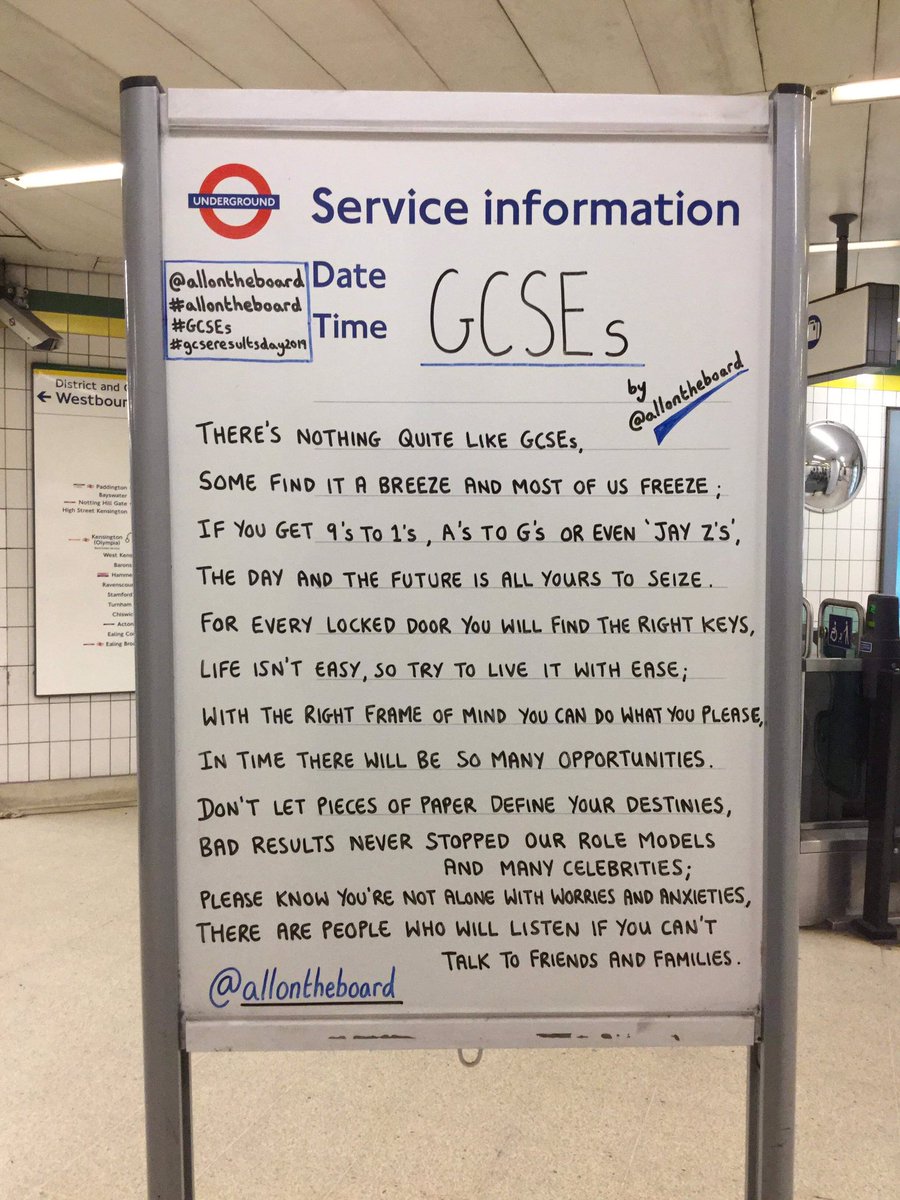 UNDERGROUND
Service information
@allontheboard
#allontheboard
#GCSEs
#gcseresultsday2019
Date
Time
GCSEs
by
@allontheboard
THERE'S NOTHING QUITE LIKE GCSEs,
SOME FIND IT A BREEZE AND MOST OF US FREEZE;
IF YOU GET 9's TO 1's, A's TO G's OR EVEN 'JAY Z's',
THE DAY AND THE FUTURE IS ALL YOURS TO SEIZE.
FOR EVERY LOCKED DOOR YOU WILL FIND THE RIGHT KEYS,
LIFE ISN'T EASY, SO TRY TO LIVE IT WITH EASE;
WITH THE RIGHT FRAME OF MIND YOU CAN DO WHAT YOU PLEASE,
IN TIME THERE WILL BE SO MANY OPPORTUNITIES.
DON'T LET PIECES OF PAPER DEFINE YOUR DESTINIES,
BAD RESULTS NEVER STOPPED OUR ROLE MODELS
AND MANY CELEBRITIES;
PLEASE KNOW YOU'RE NOT ALONE WITH WORRIES AND ANXIETIES,
THERE ARE PEOPLE WHO WILL LISTEN IF YOU CAN'T
TALK TO FRIENDS AND FAMILIES.
@allontheboard
District and
Westbour
Paddington
Bayswater
Notting Hill Gate
High Street Kensington
Kensington
(Olympia)
West Kens
Barons
Hamme
Ravenscour
Stamford
Turnham
Chiswic
Acton
Ealing Co
Ealing Bro